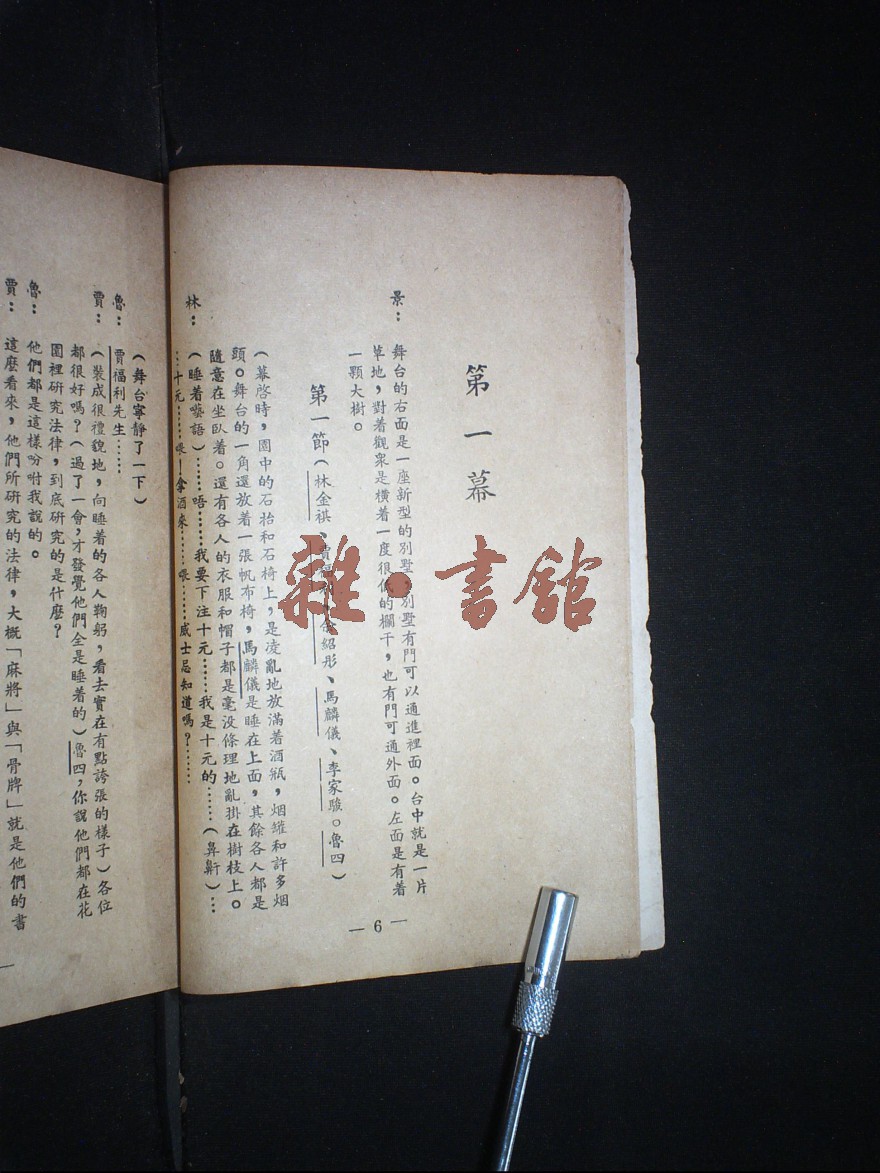 第一幕
景：舞台的右面是一座新型的別墅，別墅有門可以通進裡面。台中就是一片
草地，對着觀衆是橫着一度很低的欄干，也有門可通外面。左面是有着
一顆大樹。
第一節（林金祺、賈福利、 紹彤、馬麟儀、李家駿。魯四）
（幕啓時，園中的石抬和石椅上，是凌亂地放滿着酒瓶，烟罐和許多烟
頭。舞台的一角還放着一張帆布椅，馬麟儀是睡在上面，其餘各人都是
隨意在坐臥着。還有各人的衣服和帽子都是毫没條理地亂掛在樹枝上。
林：（睡着囈語）……唔……我要下注十元……我是十元的……（鼻鼾）…
…十元……喂—拿酒來……喂……威士忌知道嗎？……
—6—
（舞台寧靜了一下）
魯：賈福利先生……
賈：（裝成很禮貌地，向睡着的各人鞠躬，看去實在有點誇張的樣子）各位
都很好嗎？（過了一會，才發覺他們全是睡着的）魯四，你說他們都在花
園裡研究法律，到底研究的是什麼？
魯：他們都是這樣吩咐我說的。
賈：這麼看來，他們所研究的法律，大概「麻將」與「骨牌」就是他們的書
雜·書館